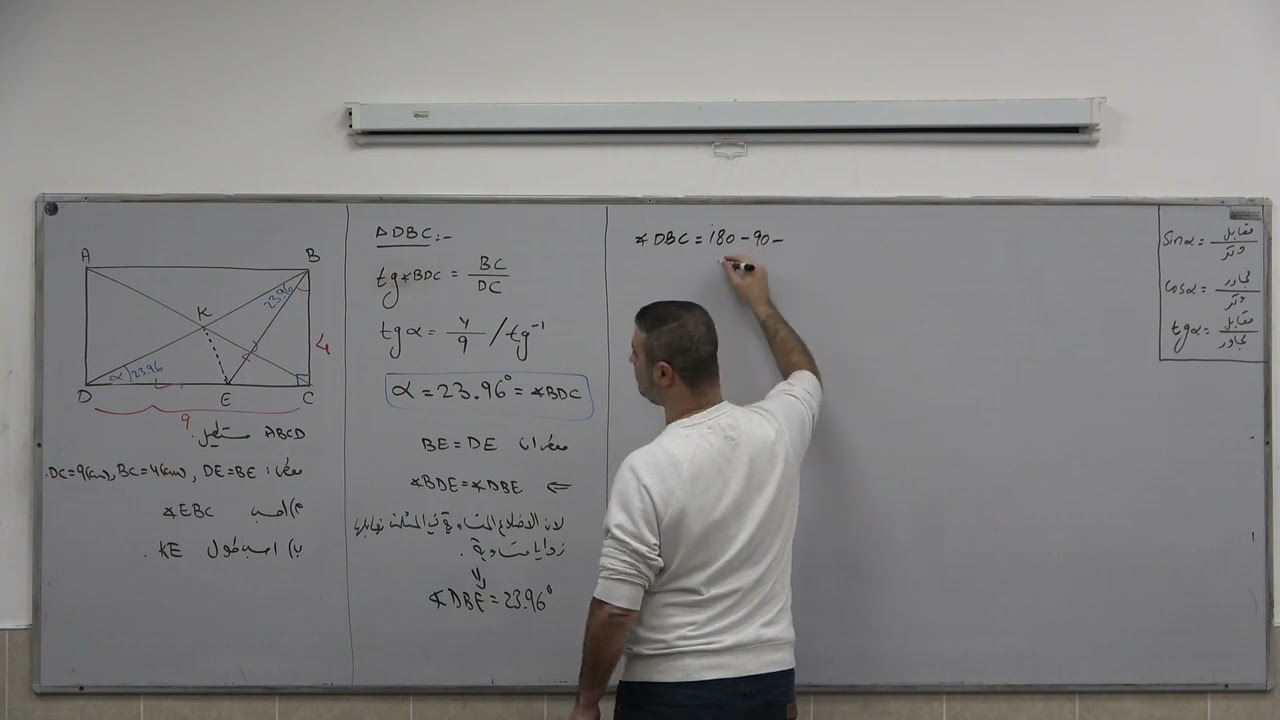 A
B
K
23.96
α
23.96
4
D
E
C
9
ABCD مستطيل.
معطى: DE=BE ,BC=4(cm) ,DC=9(cm).
أ) احسب ∢EBC
ب) احسب طول KE.
△DBC:-
tg∢BDC = BC/DC
tgα = 4/9 /tg⁻¹
α = 23.96° = ∢BDC
معطى ان BE = DE
⇐ ∢BDE = ∢DBE
لان الاضلاع المتساوية في المثلث تقابلها
زوايا متساوية.
⇓
∢DBE = 23.96°
∢DBC = 180 - 90 -
Sinα = مقابل/وتر
cosα = مجاور/وتر
tgα = مقابل/مجاور